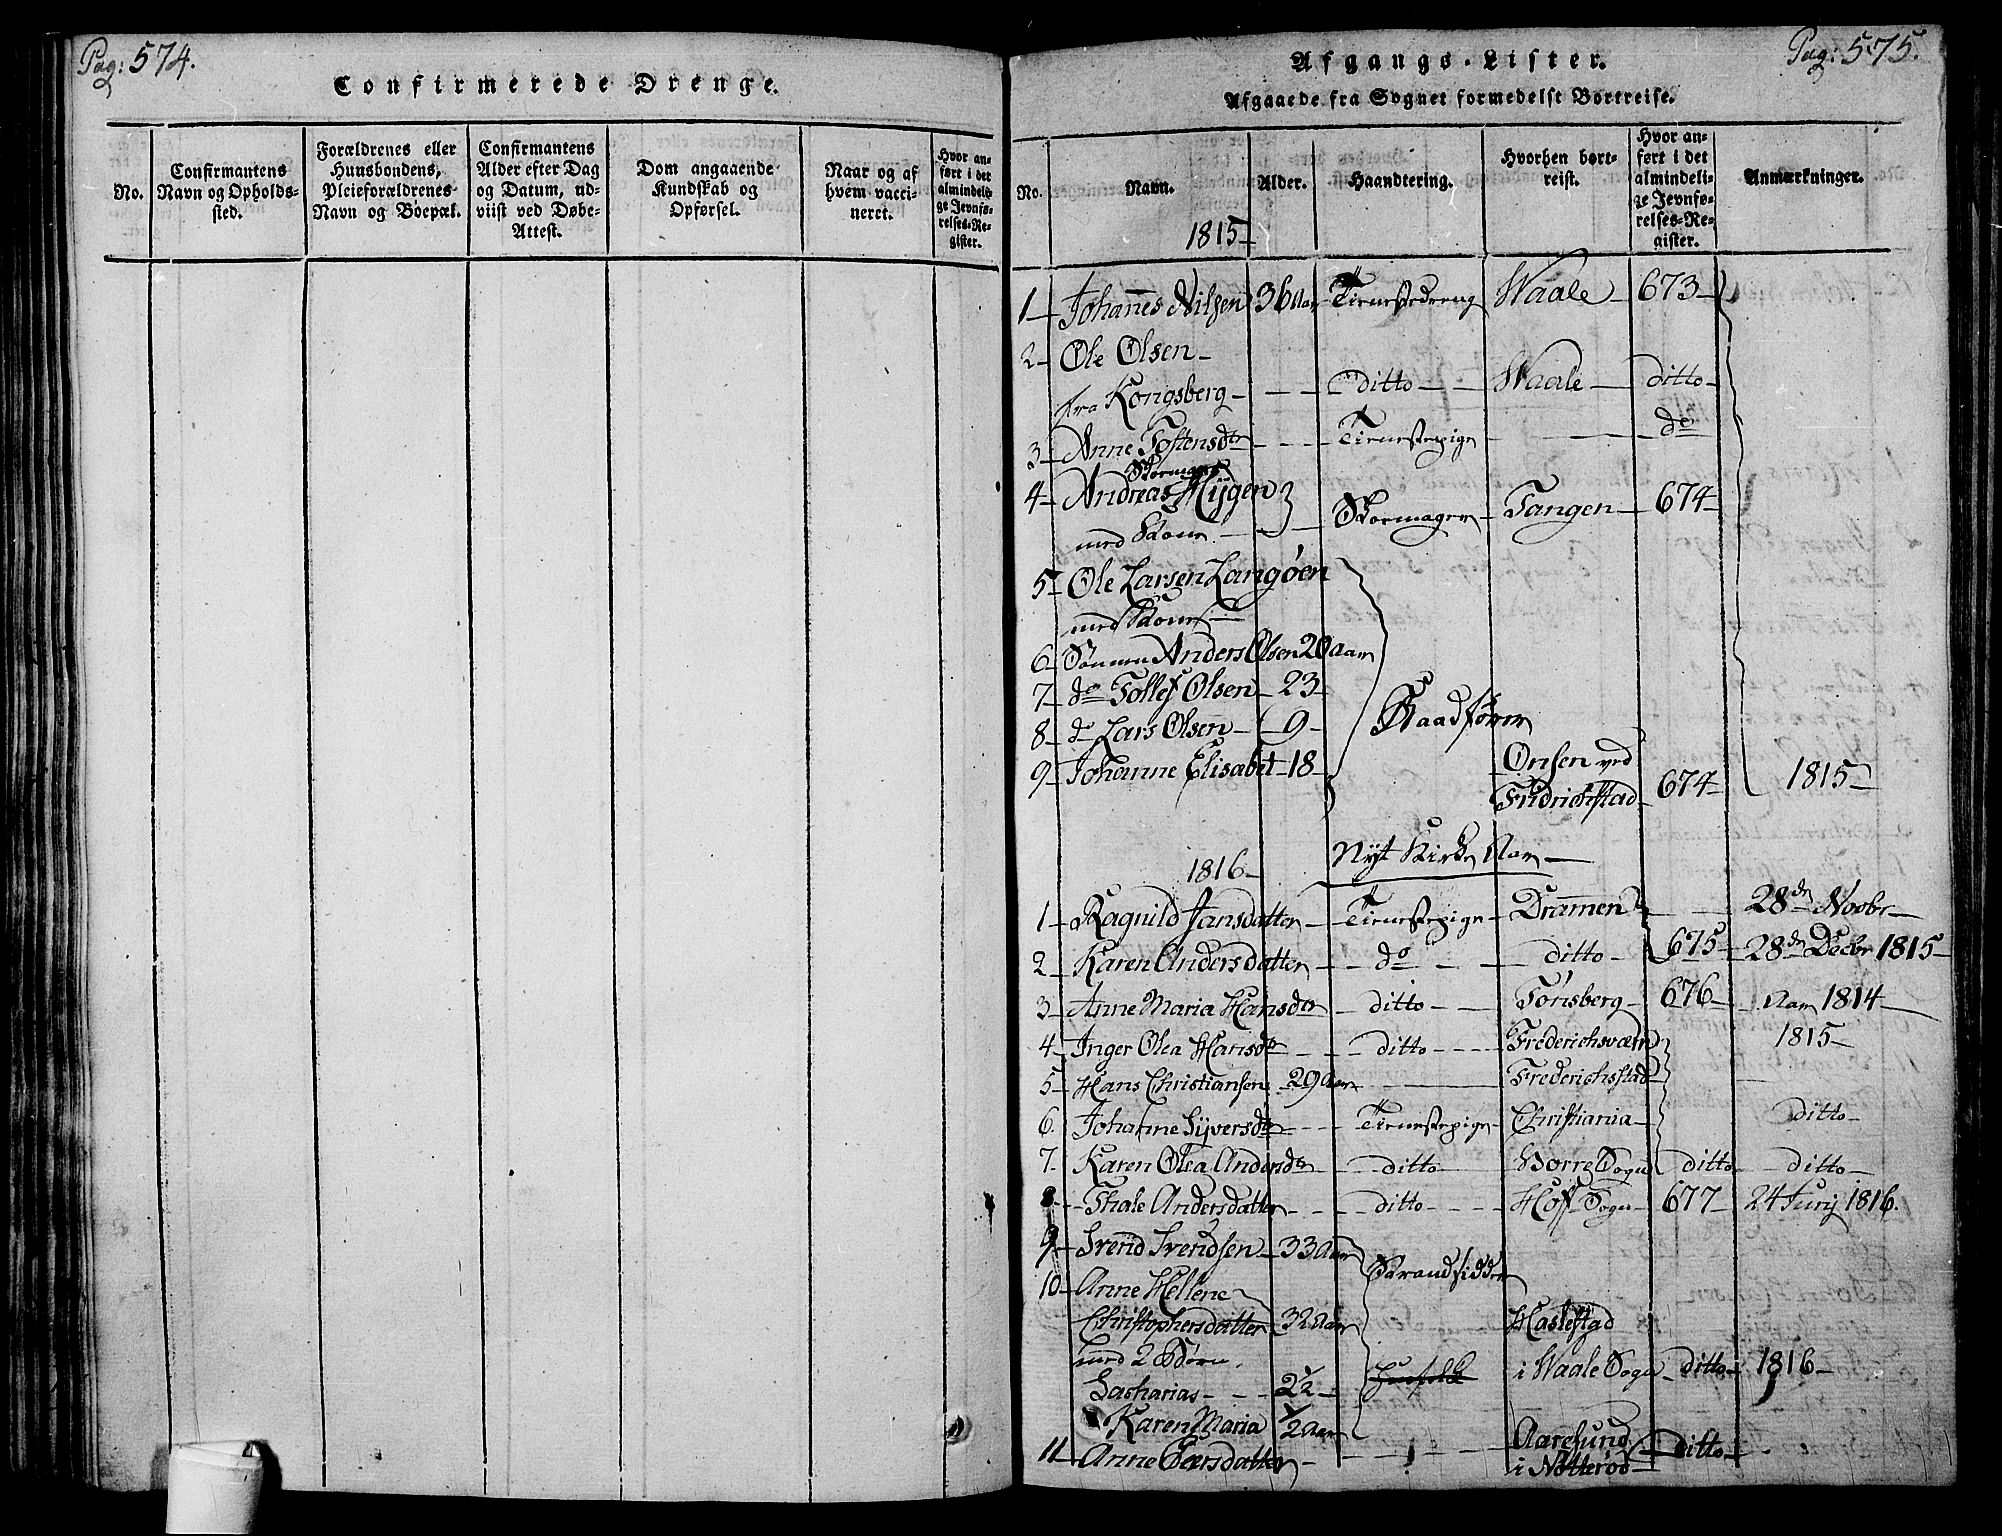 Pag: 574.
Confirmerede Drenge.
No.
Confirmantens
Navn og Opholds-
sted.
Forældrenes eller
Huusbondens,
Pleieforældrenes
Navn og Boepæl.
Confirmantens
Alder efter Dag
og Datum, ud-
viist ved Døbe-
Attest.
Dom angaaende
Kundskab og
Opførsel.
Naar og af
hvem vacci-
neret.
Hvor an-
ført i det
almindeli-
ge Jevnfø-
relses-Re-
gister.
Pag: 575.
Afgangs-Lister.
Afgaaede fra Sognet formedelst Bortreise.
No.
Navn.
Alder.
Haandtering.
Hvorhen bort-
reist.
Hvor an-
ført i det
almindeli-
ge Jevnfø-
relses-Re-
gister.
Anmærkninger.
1815
1 Johannes Nilsen 36 Aar Tienestedreng Waale 673
2 Ole Olsen
fra Kongsberg ditto Waale ditto
3 Anne Toftensdtr Tienestepige do
Skomager
4 Andreas Hÿgen Skoemager Tangen 674
med Kone
5 Ole Larsen Langøen
med Kone
6 Sönnen Anders Olsen 20 Aar
7 do Tollef Olsen 23
8 do Lars Olsen 9
9 Johanne Elisabet 18
Onsen ved
Fridrichstad 674 1815
Nÿt Kirke Aar
1816
1 Ragnild Jansdatter Tienestepige Drammen 28de Novbr
2 Karen Andersdatter do ditto 675 28de Decbr 1815
3 Anne Maria Hansdtr ditto Tønsberg 676 Aar 1814
4 Inger Olea Hansdtr ditto Frederichsværn 1815
5 Hans Christiansen 29 Aar Frederichstad
6. Johanne Sÿversdtr Tienestepige Christiania ditto
7. Karen Olea Andersdtr ditto Borre Sogn ditto ditto
8 Thale Andersdatter ditto Hoff Sogn 677 24 Junÿ 1816.
9 Svend Svendsen 33 Aar
Strandsidder
10 Anne Hellene
Christophersdatter 32 Aar Haslestad
med 2 Børn. i Waale Sogn ditto 1816
Zacharias 2½
Karen Maria ½ Aar
11 Anne Larsdatter Aaresund
i Nötteröe ditto